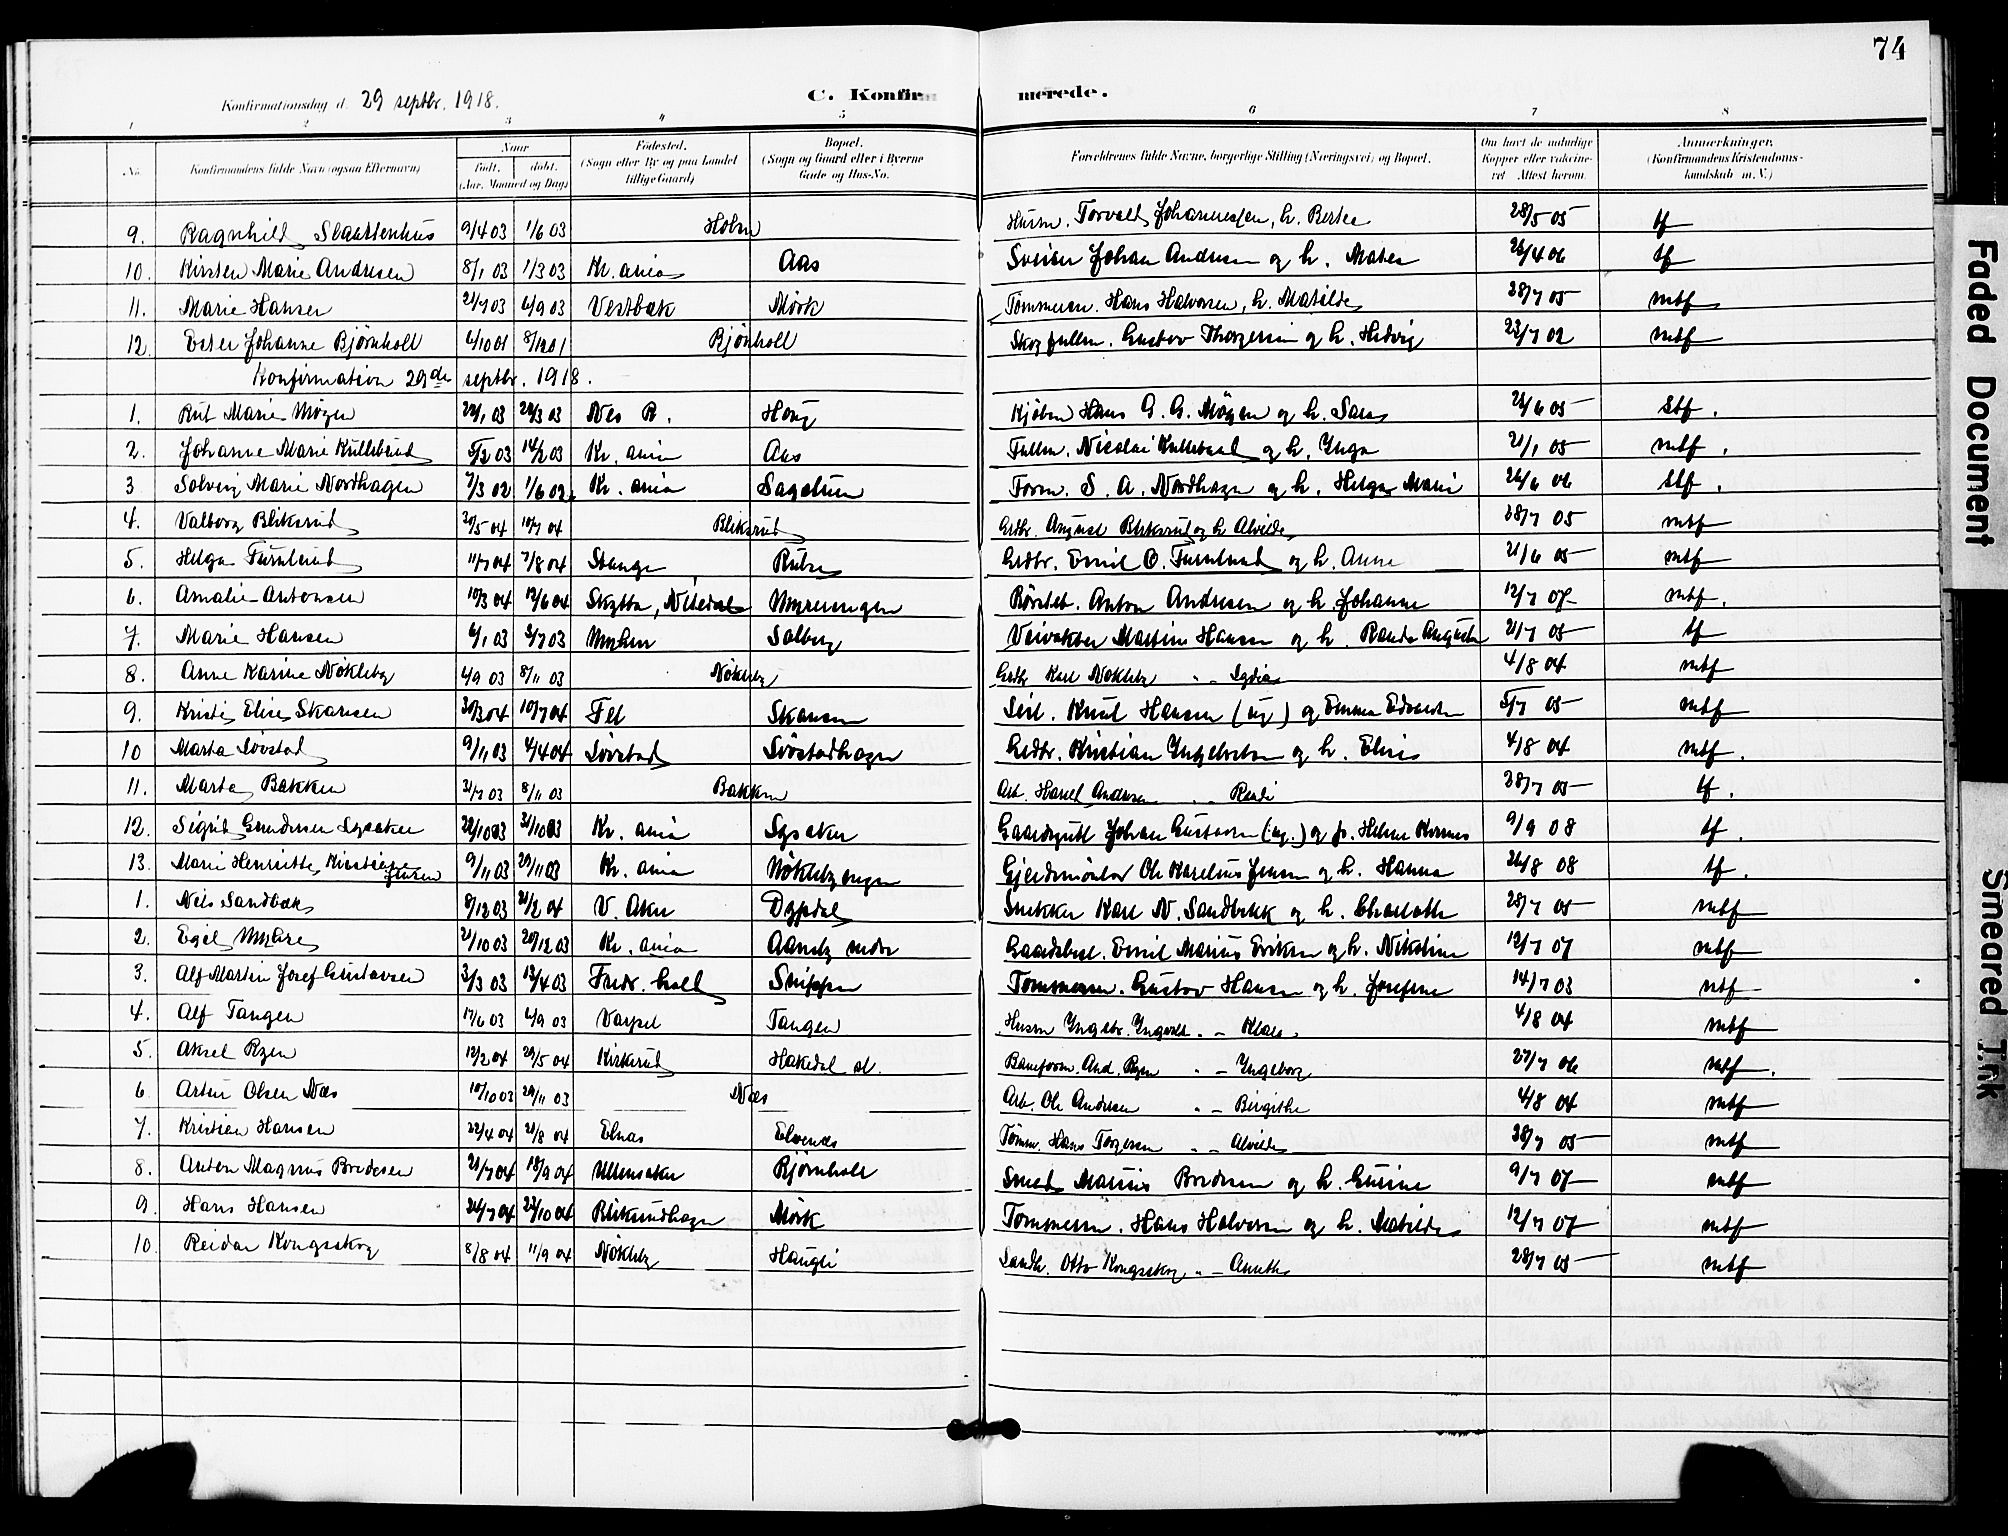 74
Konfirmationsdag d. 29 septbr. 1918.
C. Konfirmerede.
1 2 3 4 5 6 7 8
No.
Konfirmandens fulde Navn (ogsaa Efternavn)
Naar
født. døbt.
(Aar, Maaned og Dag)
Fødested.
(Sogn eller By og paa Landet
tillige Gaard)
Bopæl.
(Sogn og Gaard eller i Byerne
Gade og Hus-No.
Forældrenes fulde Navne, borgerlige Stilling (Næringsvei) og Bopæl.
Om havt de naturlige
Kopper eller vaccine-
ret Attest herom.
Anmærkninger.
(Konfirmandens Kristendoms-
kundskab m. V.)
9. Ragnhild Slaattenhus 9/4 03 1/6 03 Holm Husm. Torvald Johannessen, h. Bertea 28/5 05 tf
10. Kirsten Marie Andresen 8/1 03 1/3 03 Kr.ania Aas Sveiser Johan Andresen og h. Matea 26/4 06 tf
11. Marie Hansen 21/7 03 6/9 03 Vestbæk Mørk Tømmerm. Hans Halvorsen, h. Matilde 28/7 05 mtf
12. Ester Johanne Bjørnholt 6/10 01 8/12 01 Bjørnholt Skogfullm. Gustav Thorgersen og h. Hedvig 23/7 02 mtf
Konfirmation 29de septbr. 1918.
1. Rut Marie Møgen 22/1 03 29/3 03 Nes R. Haug Kjøbm Hans G. G. Møgen og h. Sara 26/6 05 stf.
2. Johanne Marie Kullebund 5/2 03 14/2 03 Kr.ania Aas Fullm. Nicolai Kullebund og h. Inga 21/1 05 mtf.
3 Solveig Marie Nordhagen 7/3 02 1/6 02 Kr.ania Sagstuen Form. S. A. Nordhagen og h. Helga Marie 26/6 06 stf.
4. Valborg Bliksrud 30/5 04 10/7 04 Bliksrud Grdbr. August Bliksrud og h Alvilde 28/7 05 mtf
5. Helga Furulund 11/7 04 7/8 04 Stange Grdbr. Emil O. Furulund og h. Anna 21/6 05 mtf
6. Amalie Antonsen 10/3 04 12/6 04 Skytta, Nitedal Myrerengen Rørlet. Anton Andresen og h. Johanne 12/7 07 mtf.
7. Marie Hansen 6/1 03 5/7 03 Myhrer Solberg Veivokter Martin Hansen og h. Randa Augusta 21/7 05 tf
8. Anne Karine Nøkleby 4/9 03 8/11 03 Nøkleby Grdbr Karl Nøkleby „ – Lydia 4/8 04 mtf
9. Kristi Elise Skansen 30/3 04 10/7 04 Fet Skansen Knut Hansen (ug) og Emma Edvardsen 5/7 05 mtf
10 Marta Løvstad 9/11 03 4/4 04 Løvstad Løvstadhagen Grdbr. Kristian Ingebretsen og h. Elise 4/8 04 mtf.
11. Marta Bakken 31/7 03 8/11 03 Bakken Arb. Harald Andersen „ – 28/7 05 tf.
12. Sigrid Gundersen Lysaker 22/10 03 31/10 03 Kr.ania Lysaker Gaardsgutt Johan Gustavsen (ug.) og p. Helene 9/9 08 tf.
13. Marie Henriette Kirstine Jensen 9/11 03 29/11 03 Kr.ania Nøklebyengen Gjerdsmontør Ole Karelius Jensen og h. Hanna 26/8 08 tf.
1. Nils Sandbæk 8/12 03 21/2 04 V. Aker Dypdal Snekker Karl N. Sandbekk og h. Charlotte 28/7 05 mtf
2. Egil Myhre 21/10 03 20/12 03 Kr.ania Aaneby nedre Gaardsbest. Emil Marius Eriksen og h. Nikoline 12/7 07 mtf
3. Alf Martin Josef Gustavsen 3/3 03 13/4 03 Fredr.hald Snippen Tømmerm. Gustav Hansen og h. Josefine 14/7 03 mtf
4. Alf Tangen 17/6 03 6/9 03 Varpet Tangen Husm Ingebr. Ingvald. „ – Klara 4/8 04 mtf
5. Aksel Ryen 12/2 04 29/5 04 Kirkerud Hakedal st. Baneform. And. Ryen „ – Ingeborg 27/7 06 mtf.
6 Artur Olsen Næs 10/10 03 29/11 03 Næs Arb. Ole Andresen „ – Birgithe 4/8 04 mtf
7. Kristian Hansen 22/4 04 21/8 04 Elnæs Elvenæs Tømm. Hans Torgersen „ – Alvilde 28/7 05 mtf
8. Anton Magnus Bredesen 21/7 04 18/9 04 Ullensaker Bjørnholt Smed Marius Bredesen og h. Gusine 9/7 07 mtf
9. Hans Hansen 24/7 04 23/10 04 Bliksrudhagen Mørk Tømmerm. Hans Halvorsen og h. Matilde 12/7 07 mtf
10. Reidar Kongsskog 8/8 04 11/9 04 Nøkleby Haugli Landh. Otto Kongsskog „ – Anette 28/7 05 mtf
Faded Document
Smeared Ink